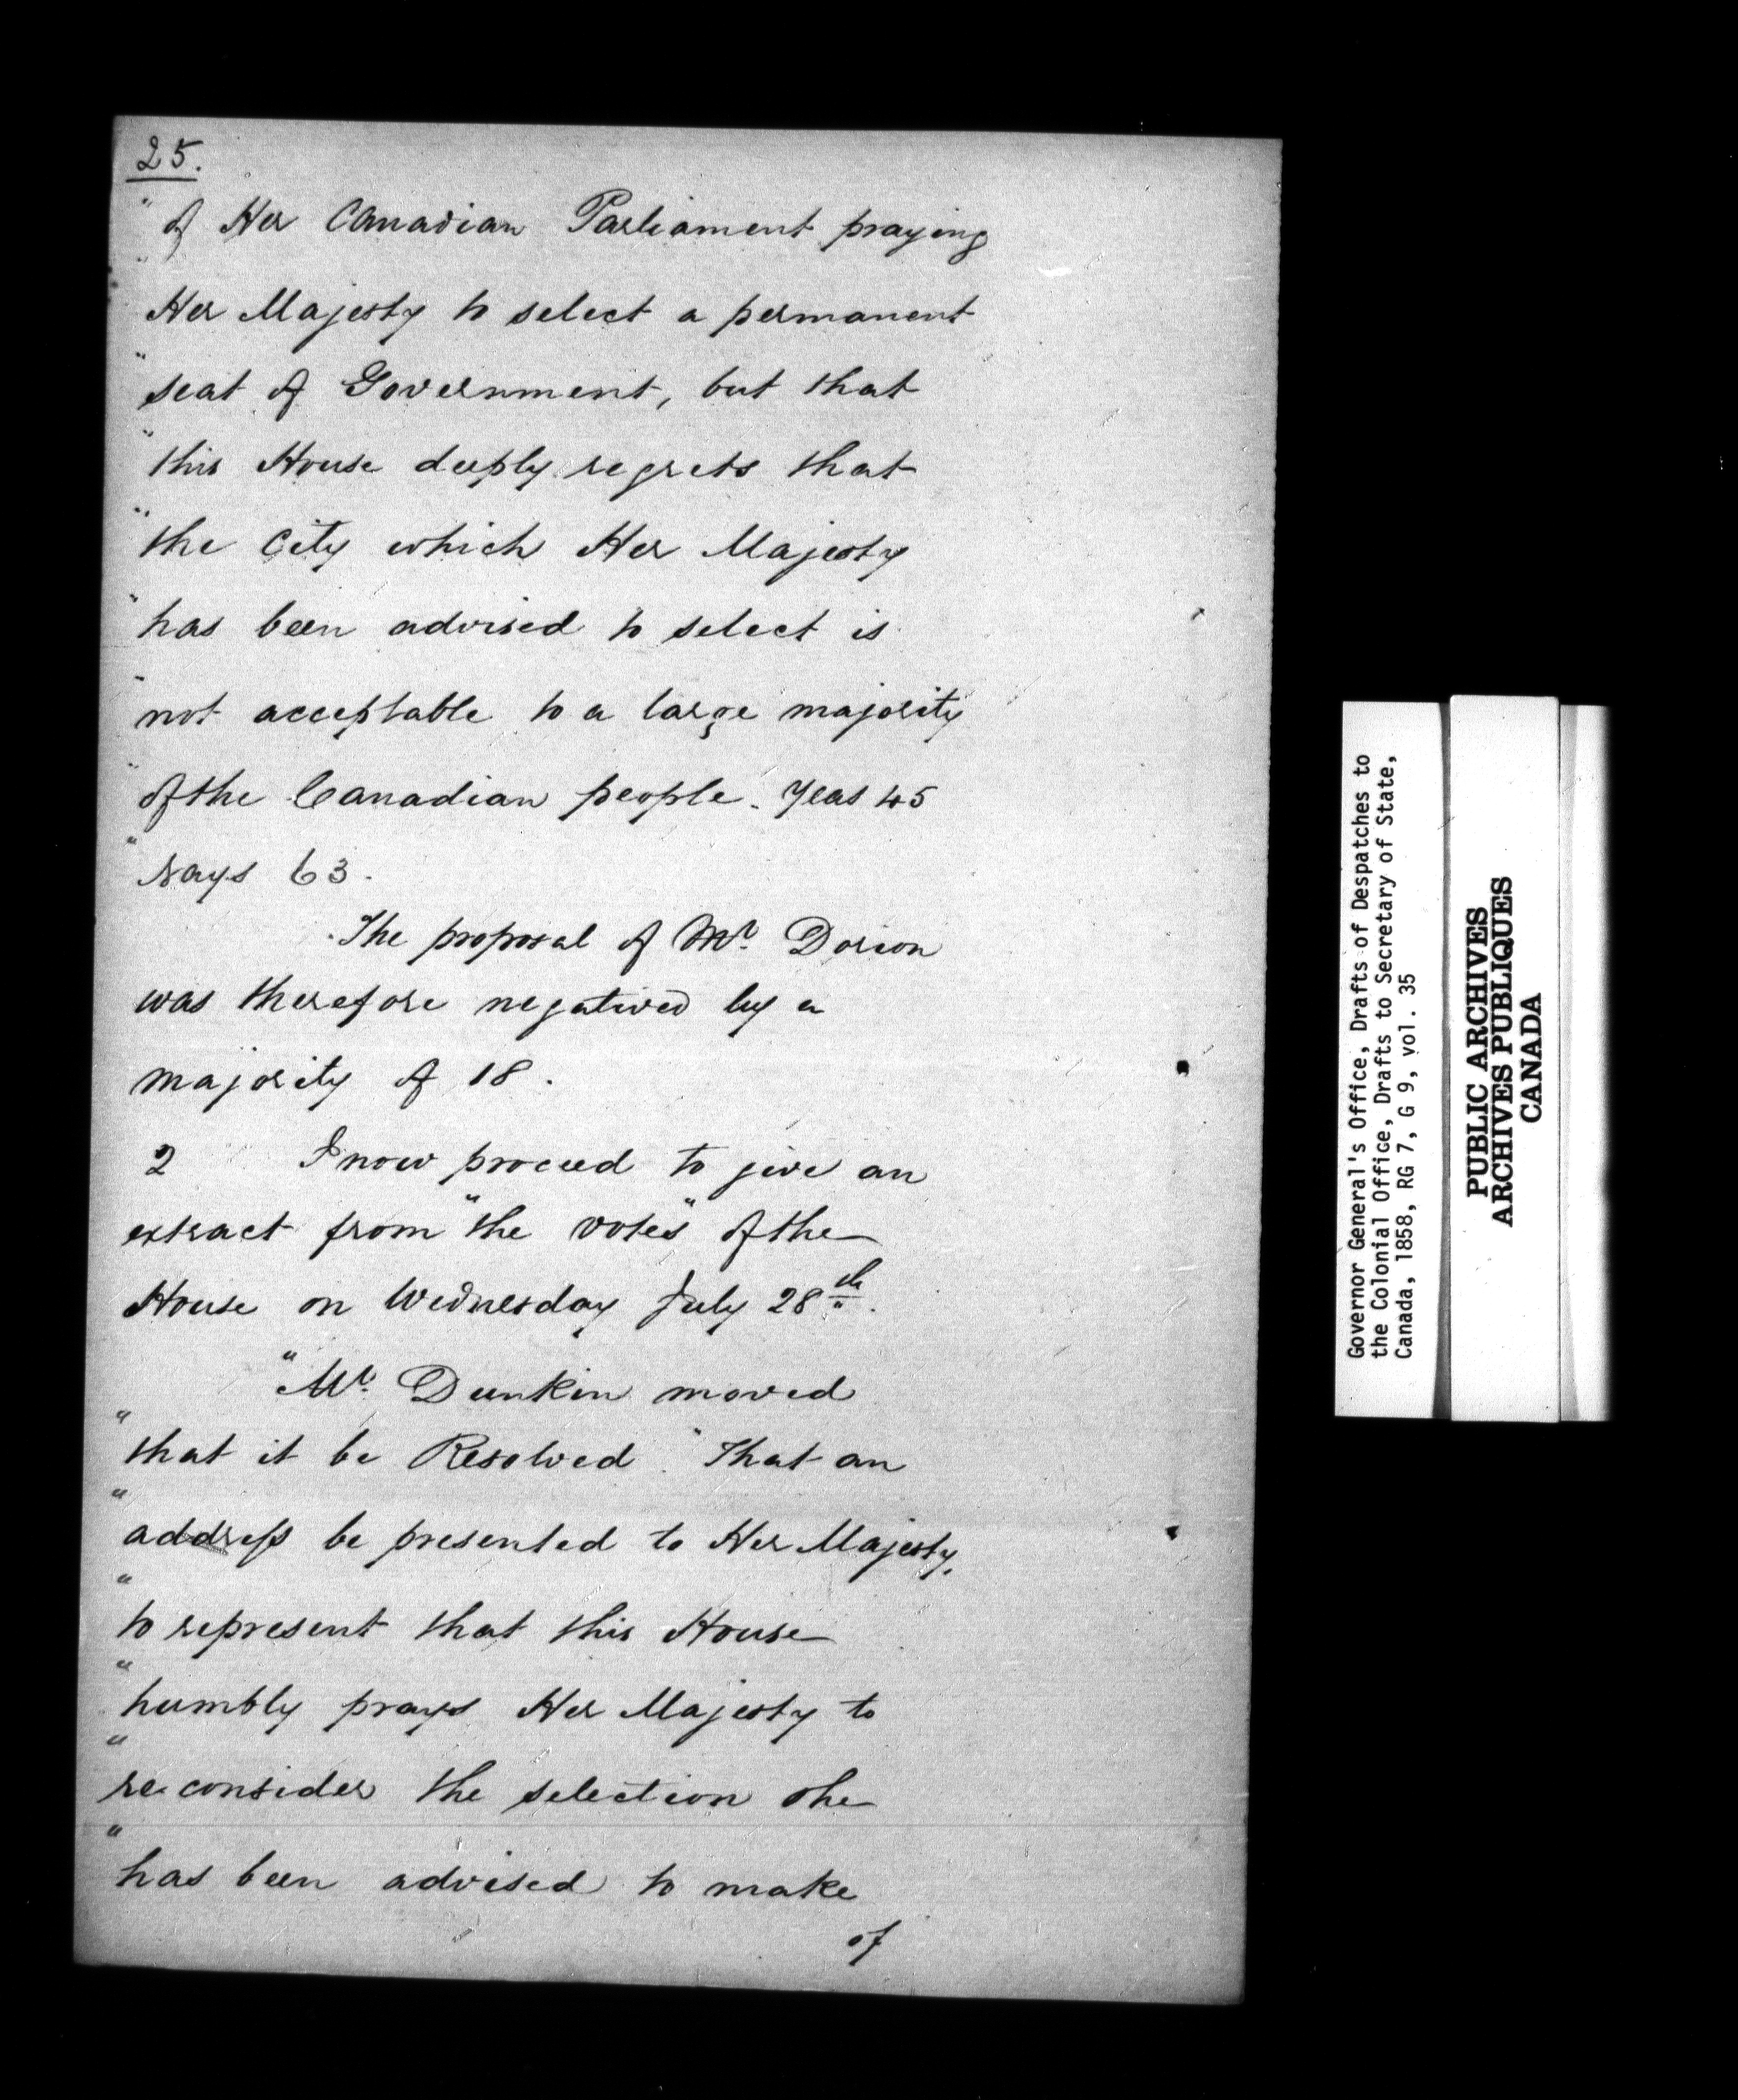 25.
" of Her Canadian Parliament praying
" Her Majesty to select a permanent
" seat of Government, but that
" this House deeply regrets that
" the City which Her Majesty
" has been advised to select is
" not acceptable to a large majority
" of the Canadian people. Yeas 45
" Nays 63.
The proposal of Mr. Dorion
was therefore negatived by a
majority of 18.
2 I now proceed to give an
extract from "the votes" of the
House on Wednesday July 28th.
"Mr. Dunkin moved
" that it be Resolved "That an
" address be presented to Her Majesty,
" to represent that this House
" humbly prays Her Majesty to
" re-consider the selection she
" has been advised to make
of
Governor General's Office, Drafts of Despatches to
the Colonial Office, Drafts to Secretary of State,
Canada, 1858, RG 7, G 9, vol. 35
PUBLIC ARCHIVES
ARCHIVES PUBLIQUES
CANADA